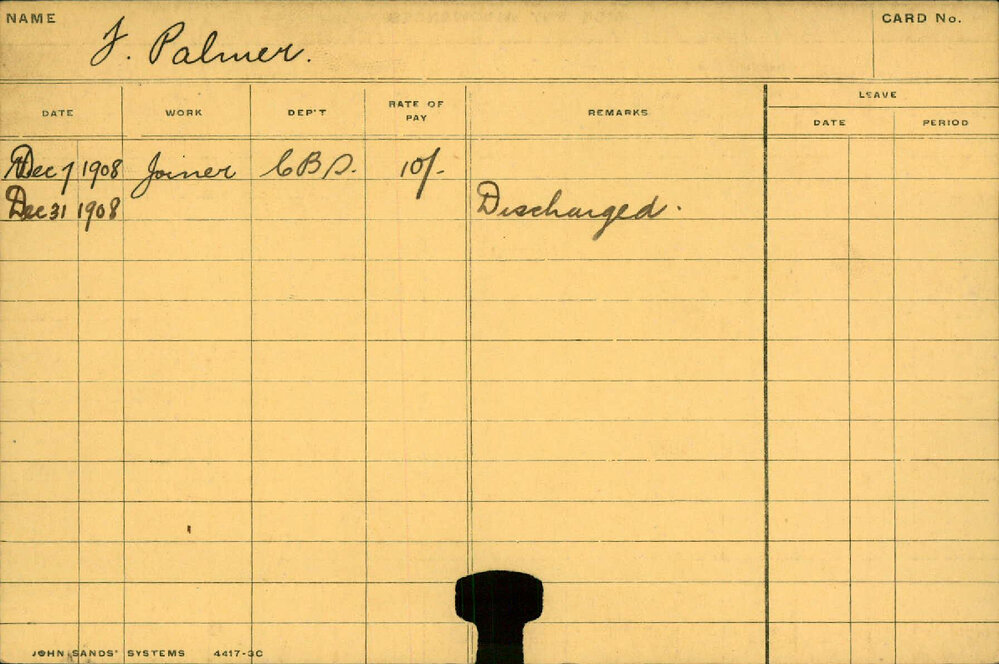 NAME
F. Palmer.
CARD No.
DATE WORK DEP'T RATE OF PAY REMARKS LEAVE
DATE PERIOD
Dec 7 1908 Joiner C.B.D. 10/-
Dec 31 1908 Discharged.
JOHN SANDS' SYSTEMS 4417-3C